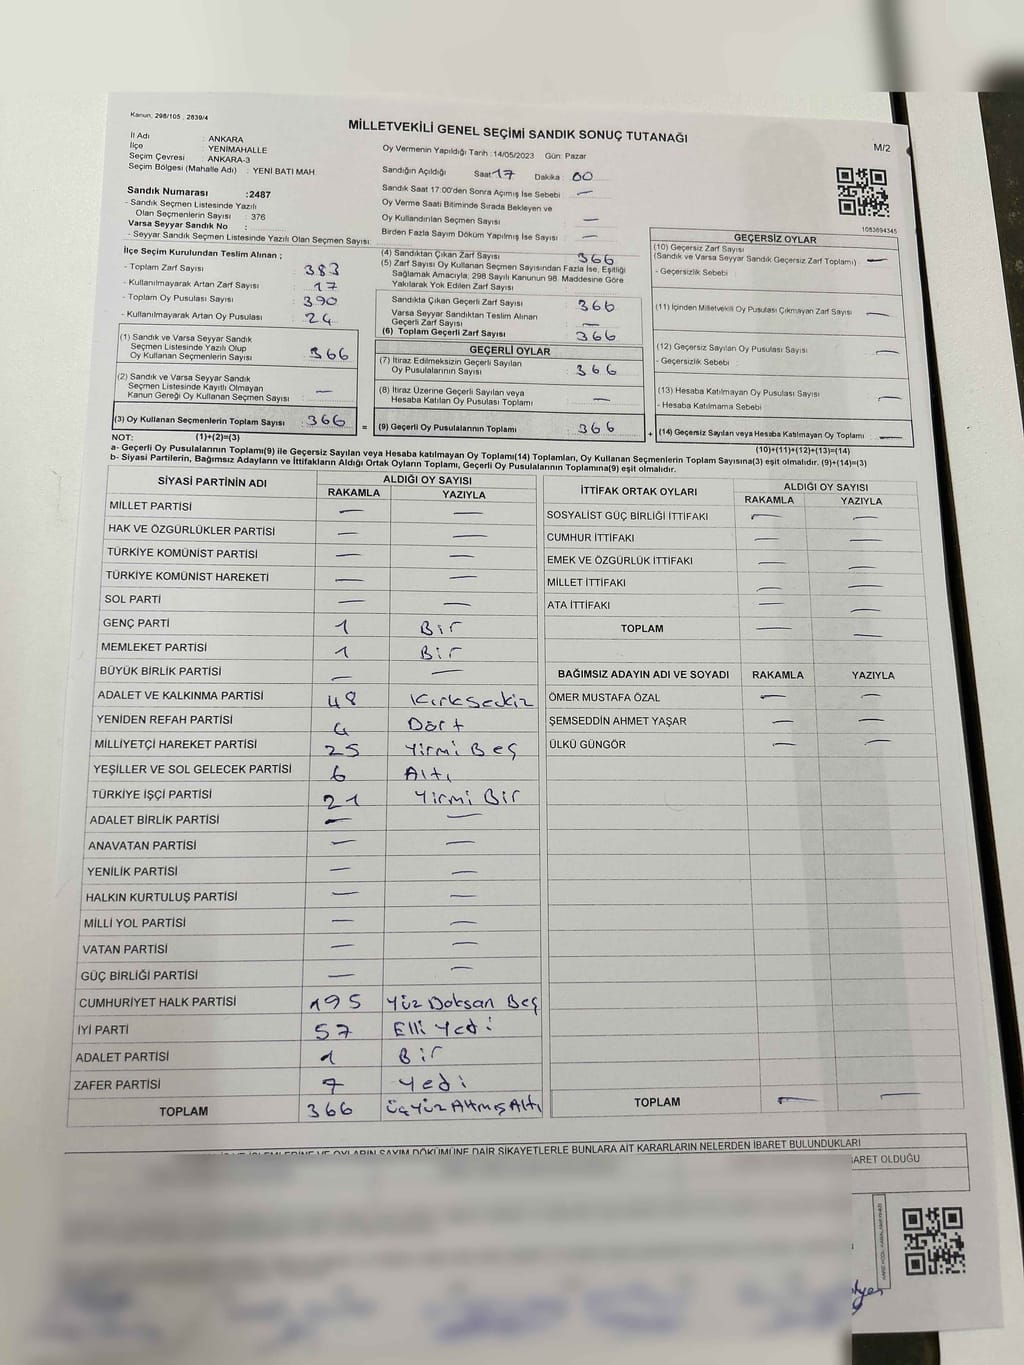 Kanun, 298/105 , 2839/4
MİLLETVEKİLİ GENEL SEÇİMİ SANDIK SONUÇ TUTANAĞI
M/2
İl Adı : ANKARA
İlçe : YENİMAHALLE
Seçim Çevresi : ANKARA-3
Seçim Bölgesi (Mahalle Adı) : YENİ BATI MAH.
Sandık Numarası :2487
- Sandık Seçmen Listesinde Yazılı
Olan Seçmenlerin Sayısı : 376
Varsa Seyyar Sandık No :
- Seyyar Sandık Seçmen Listesinde Yazılı Olan Seçmen Sayısı:
Oy Vermenin Yapıldığı Tarih :14/05/2023 Gün: Pazar
Sandığın Açıldığı Saat:17 Dakika: 00
Sandık Saat 17:00'den Sonra Açımış İse Sebebi : —
Oy Verme Saati Bitiminde Sırada Bekleyen ve
Oy Kullandırılan Seçmen Sayısı : —
Birden Fazla Sayım Döküm Yapılmış İse Sayısı : —
1083694345
İlçe Seçim Kurulundan Teslim Alınan ;
- Toplam Zarf Sayısı : 383
- Kullanılmayarak Artan Zarf Sayısı : 17
- Toplam Oy Pusulası Sayısı : 390
- Kullanılmayarak Artan Oy Pusulası : 24
(1) Sandık ve Varsa Seyyar Sandık
Seçmen Listesinde Yazılı Olup
Oy Kullanan Seçmenlerin Sayısı : 366
(2) Sandık ve Varsa Seyyar Sandık
Seçmen Listesinde Kayıtlı Olmayan
Kanun Gereği Oy Kullanan Seçmen Sayısı : —
(3) Oy Kullanan Seçmenlerin Toplam Sayısı : 366
(4) Sandıktan Çıkan Zarf Sayısı : 366
(5) Zarf Sayısı Oy Kullanan Seçmen Sayısından Fazla İse, Eşitliği
Sağlamak Amacıyla, 298 Sayılı Kanunun 98. Maddesine Göre
Yakılarak Yok Edilen Zarf Sayısı :
Sandıkta Çıkan Geçerli Zarf Sayısı : 366
Varsa Seyyar Sandıktan Teslim Alınan
Geçerli Zarf Sayısı : —
(6) Toplam Geçerli Zarf Sayısı : 366
GEÇERLİ OYLAR
(7) İtiraz Edilmeksizin Geçerli Sayılan
Oy Pusulalarının Sayısı : 366
(8) İtiraz Üzerine Geçerli Sayılan veya
Hesaba Katılan Oy Pusulası Toplamı : —
= (9) Geçerli Oy Pusulalarının Toplamı : 366
GEÇERSİZ OYLAR
(10) Geçersiz Zarf Sayısı
(Sandık ve Varsa Seyyar Sandık Geçersiz Zarf Toplamı) : —
- Geçersizlik Sebebi :
(11) İçinden Milletvekili Oy Pusulası Çıkmayan Zarf Sayısı : —
(12) Geçersiz Sayılan Oy Pusulası Sayısı : —
- Geçersizlik Sebebi :
(13) Hesaba Katılmayan Oy Pusulası Sayısı : —
- Hesaba Katılmama Sebebi :
+ (14) Geçersiz Sayılan veya Hesaba Katılmayan Oy Toplamı : —
NOT: (1)+(2)=(3) (10)+(11)+(12)+(13)=(14)
a- Geçerli Oy Pusulalarının Toplamı(9) ile Geçersiz Sayılan veya Hesaba katılmayan Oy Toplamı(14) Toplamları, Oy Kullanan Seçmenlerin Toplam Sayısına(3) eşit olmalıdır. (9)+(14)=(3)
b- Siyasi Partilerin, Bağımsız Adayların ve İttifakların Aldığı Ortak Oyların Toplamı, Geçerli Oy Pusulalarının Toplamına(9) eşit olmalıdır.
SİYASİ PARTİNİN ADI ALDIĞI OY SAYISI
RAKAMLA YAZIYLA
MİLLET PARTİSİ — —
HAK VE ÖZGÜRLÜKLER PARTİSİ — —
TÜRKİYE KOMÜNİST PARTİSİ — —
TÜRKİYE KOMÜNİST HAREKETİ — —
SOL PARTİ — —
GENÇ PARTİ 1 Bir
MEMLEKET PARTİSİ 1 Bir
BÜYÜK BİRLİK PARTİSİ — —
ADALET VE KALKINMA PARTİSİ 48 Kırksekiz
YENİDEN REFAH PARTİSİ 4 Dört
MİLLİYETÇİ HAREKET PARTİSİ 25 Yirmi Beş
YEŞİLLER VE SOL GELECEK PARTİSİ 6 Altı
TÜRKİYE İŞÇİ PARTİSİ 21 Yirmi Bir
ADALET BİRLİK PARTİSİ — —
ANAVATAN PARTİSİ — —
YENİLİK PARTİSİ — —
HALKIN KURTULUŞ PARTİSİ — —
MİLLİ YOL PARTİSİ — —
VATAN PARTİSİ — —
GÜÇ BİRLİĞİ PARTİSİ — —
CUMHURİYET HALK PARTİSİ 195 Yüz Doksan Beş
İYİ PARTİ 57 Elli Yedi
ADALET PARTİSİ 1 Bir
ZAFER PARTİSİ 7 Yedi
TOPLAM 366 ÜçYüz AltmışAltı
İTTİFAK ORTAK OYLARI ALDIĞI OY SAYISI
RAKAMLA YAZIYLA
SOSYALİST GÜÇ BİRLİĞİ İTTİFAKI — —
CUMHUR İTTİFAKI — —
EMEK VE ÖZGÜRLÜK İTTİFAKI — —
MİLLET İTTİFAKI — —
ATA İTTİFAKI — —
TOPLAM — —
BAĞIMSIZ ADAYIN ADI VE SOYADI RAKAMLA YAZIYLA
ÖMER MUSTAFA ÖZAL — —
ŞEMSEDDİN AHMET YAŞAR — —
ÜLKÜ GÜNGÖR — —
TOPLAM — —
OYLARIN SAYIM DÖKÜMÜNE DAİR ŞİKAYETLERLE BUNLARA AİT KARARLARIN NELERDEN İBARET BULUNDUKLARI
OLDUĞU